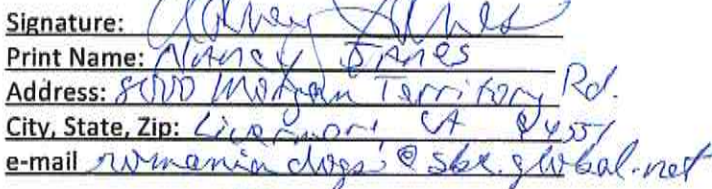 Signature: Nancy Janes
Print Name: Nancy Janes
Address: 8000 Morgan Territory Rd.
City, State, Zip: Livermore CA 94551
e-mail romaniadogs@sbcglobal.net